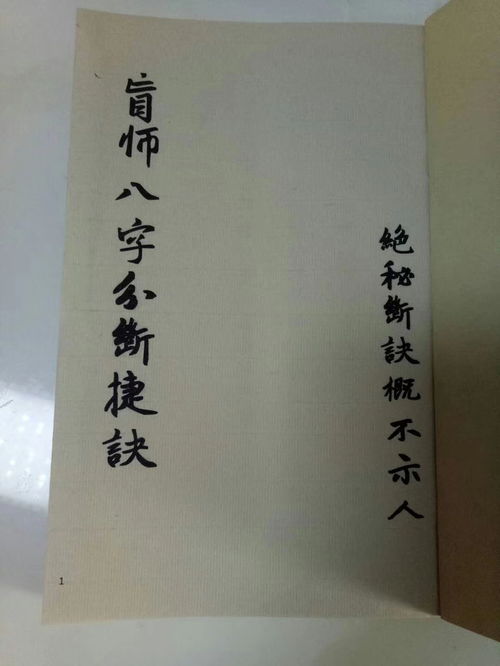 絶秘斷訣概不示人
盲师八字分斷捷訣
1